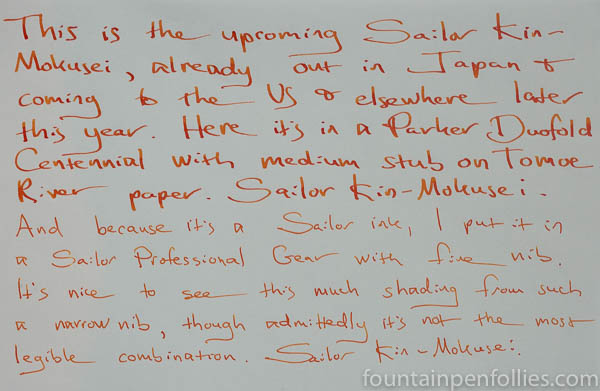 This is the upcoming Sailor Kin-
Mokusei, already out in Japan &
coming to the US & elsewhere later
this year. Here it's in a Parker Duofold
Centennial with medium stub on Tomoe
River paper. Sailor Kin-Mokusei.
And because it's a Sailor ink, I put it in
a Sailor Professional Gear with fine nib.
It's nice to see this much shading from such
a narrow nib, though admittedly it's not the most
legible combination. Sailor Kin-Mokusei.
fountainpenfollies.com